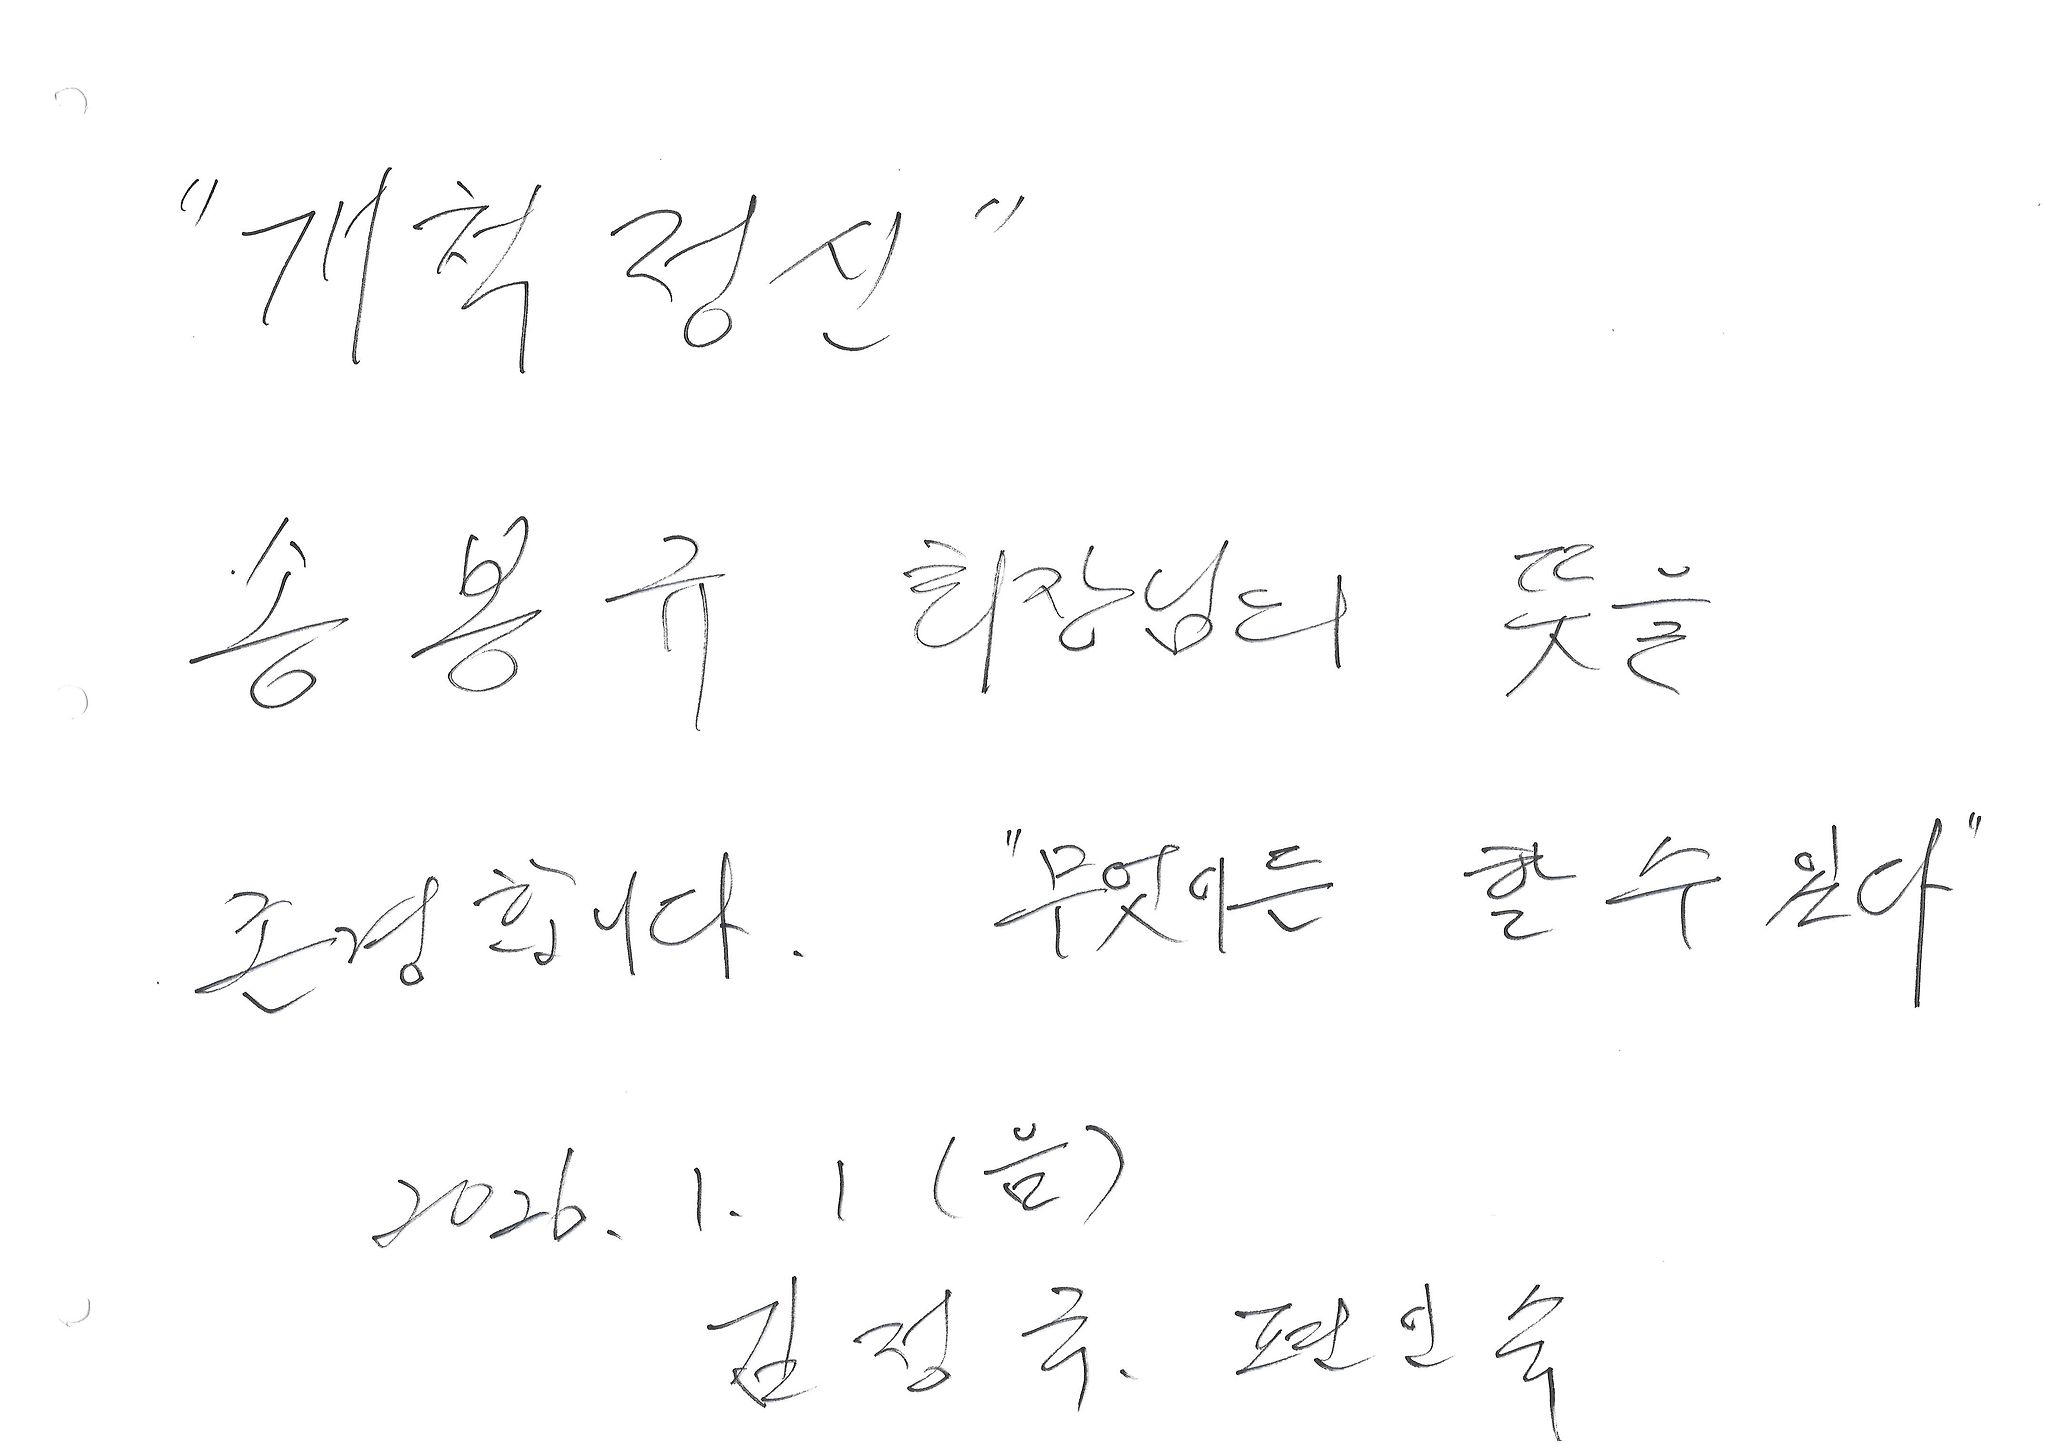 "개척정신"
송봉규 회장님의 뜻을
존경합니다. "무엇이든 할 수 있다"
2026. 1. 1 (음)
김정국. 편인숙